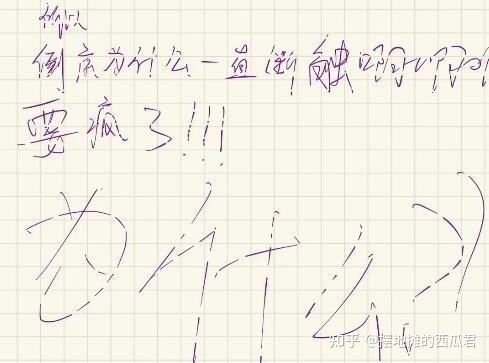 你说
到底为什么一直断触啊啊啊啊
要疯了!!!
为什么?
知乎 @摆地摊的西瓜君